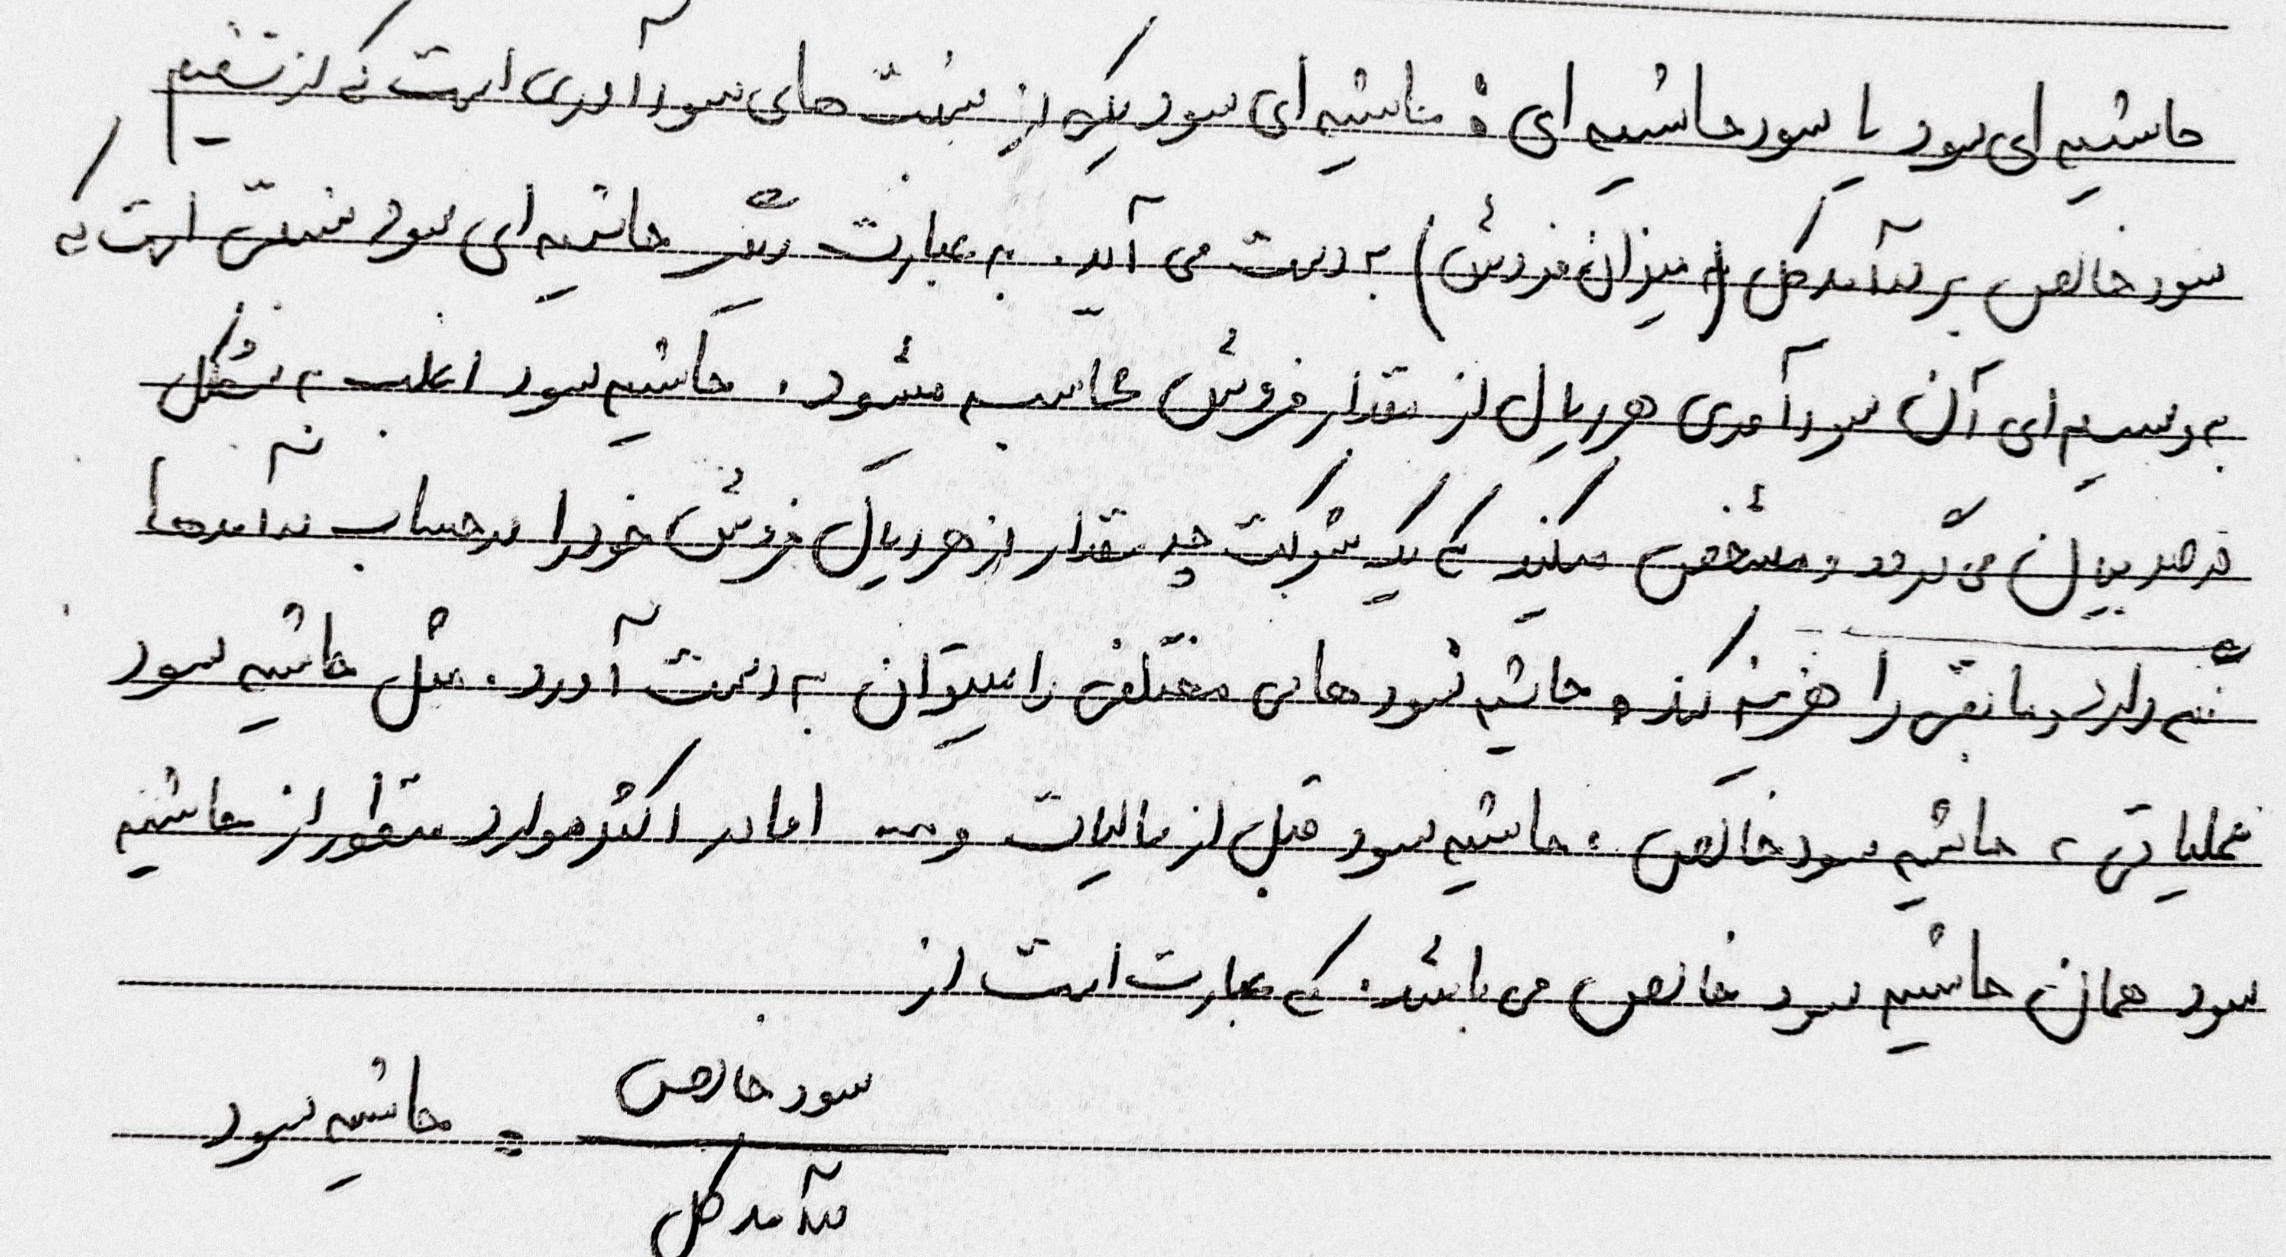 حاشیه ای سود یا سود حاشیه ای : حاشیه ای سود یکی از نسبت های سودآوری است که از تقسیم
سود خالص بر درآمد کل (یا میزان فروش) به دست می آید. به عبارت دیگر حاشیه ای سود نسبتی است که
به وسیله ای آن سودآوری هر ریال از مقدار فروش محاسبه میشود. حاشیه سود اغلب به شکل
درصد بیان می گردد و مشخص میکند که یک شرکت چه مقدار از هر ریال فروش خود را در حساب درآمدها
نگه دارد و مابقی را هزینه کند. حاشیه سود های مختلفی را میتوان به دست آورد. مثل حاشیه سود
عملیاتی، حاشیه سود خالص، حاشیه سود قبل از مالیات و ... اما در اکثر موارد منظور از حاشیه
سود همان حاشیه سود خالص می باشد. که عبارت است از
سود خالص
حاشیه سود =
درآمد کل